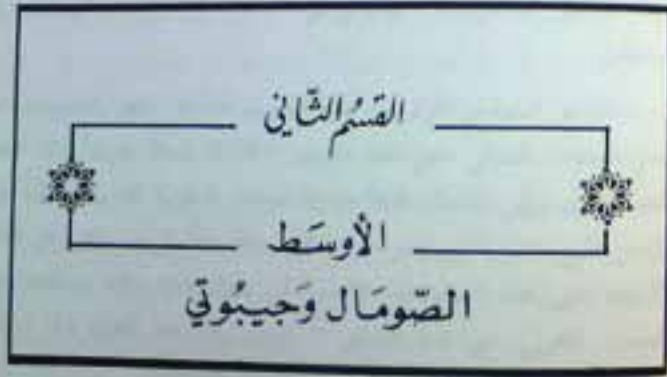 القسْم الثَّاني
الأوسَط
الصّومَال وَجيبُوتي